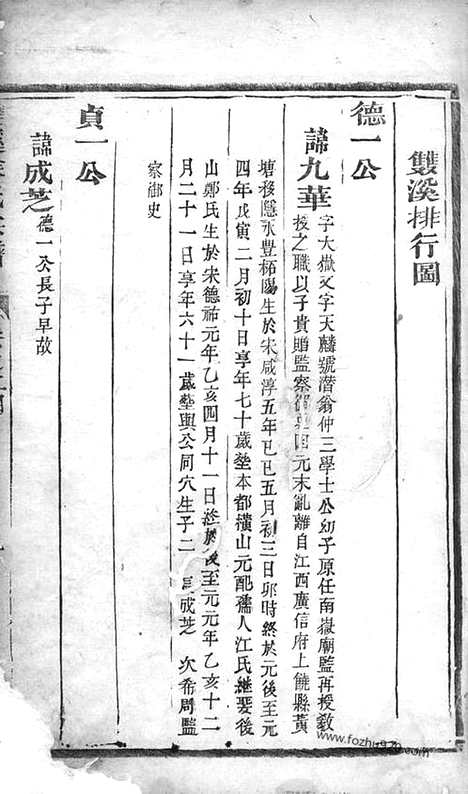 雙溪排行圖
德一公
諱九華 字大嶽又字天麟號潛翁仲三學士公幼子原任南嶽廟監再授教
授之職以子貴贈監察御史因元末亂離自江西廣信府上饒縣黃
塘移隱永豐栢陽生於宋咸淳五年己巳五月初三日卯時終於元後至元
四年戊寅二月初十日享年七十歲塟本都橫山元配孺人江氏繼娶後
山鄭氏生於宋德祐元年乙亥四月十一日終於後至元元年乙亥十二
月二十一日享年六十一歲塟與公同穴生子二 成芝 次希周監
察御史
貞一公
諱成芝 德一公長子早故
www.fozhu920.com